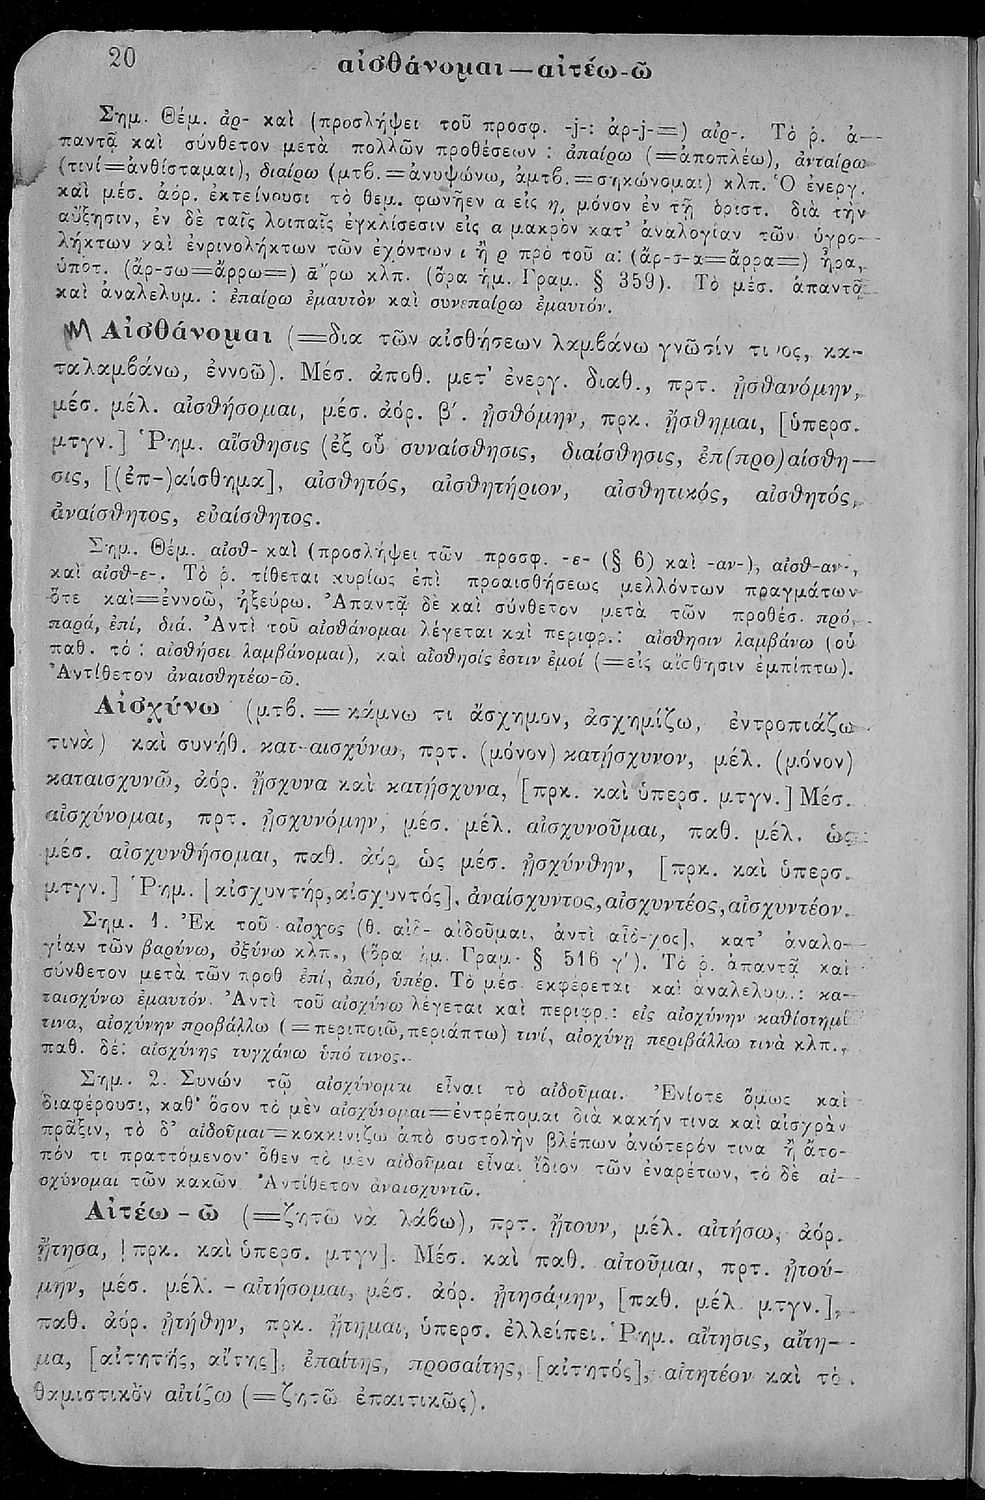 20
αἰσθάνομαι — αἰτέω-ῶ
Σημ. Θέμ. ἀρ- καὶ (προσλήψει τοῦ προσφ. -j-: ἀρ-j-=) αἰρ-. Τὸ ῥ. ἀ-
παντᾷ καὶ σύνθετον μετὰ πολλῶν προθέσεων : ἀπαίρω (=ἀποπλέω), ἀνταίρω
(τινί=ἀνθίσταμαι), διαίρω (μτβ.=ἀνυψώνω, ἀμτβ.=σηκώνομαι) κλπ. Ὁ ἐνεργ.
καὶ μέσ. ἀόρ. ἐκτείνουσι τὸ θεμ. φωνῆεν α εἰς η, μόνον ἐν τῇ ὁριστ. διὰ τὴν
αὔξησιν, ἐν δὲ ταῖς λοιπαῖς ἐγκλίσεσιν εἰς α μακρὸν κατ' ἀναλογίαν τῶν ὑγρο-
λήκτων καὶ ἐνρινολήκτων τῶν ἐχόντων ι ἢ ρ πρὸ τοῦ α: (ἄρ-σ-α=ἄρρα=) ἦρα,
ὑποτ. (ἄρ-σω=ἄρρω=) ἄρω κλπ. (ὅρα ἡμ. Γραμ. § 359). Τὸ μέσ. ἀπαντᾷ
καὶ ἀναλελυμ. : ἐπαίρω ἐμαυτὸν καὶ συνεπαίρω ἐμαυτόν.
Αἰσθάνομαι (=δια τῶν αἰσθήσεων λαμβάνω γνῶσίν τινος, κα-
ταλαμβάνω, ἐννοῶ). Μέσ. ἀποθ. μετ' ἐνεργ. διαθ., πρτ. ᾐσθανόμην,
μέσ. μέλ. αἰσθήσομαι, μέσ. ἀόρ. β'. ᾐσθόμην, πρκ. ᾔσθημαι, [ὑπερσ.
μτγν.] Ῥημ. αἴσθησις (ἐξ οὗ συναίσθησις, διαίσθησις, ἐπ(προ)αίσθη-
σις, [(ἐπ-)αίσθημα], αἰσθητός, αἰσθητήριον, αἰσθητικός, αἰσθητός,
ἀναίσθητος, εὐαίσθητος.
Σημ. Θέμ. αἰσθ- καὶ (προσλήψει τῶν προσφ. -ε- (§ 6) καὶ -αν-), αἰσθ-αν-,
καὶ αἰσθ-ε-. Τὸ ῥ. τίθεται κυρίως ἐπὶ προαισθήσεως μελλόντων πραγμάτων
ὅτε καὶ=ἐννοῶ, ἠξεύρω. Ἀπαντᾷ δὲ καὶ σύνθετον μετὰ τῶν προθέσ. πρό,
παρά, ἐπί, διά. Ἀντὶ τοῦ αἰσθάνομαι λέγεται καὶ περιφρ.: αἴσθησιν λαμβάνω (οὗ
παθ. τό : αἰσθήσει λαμβάνομαι), καὶ αἴσθησίς ἐστιν ἐμοί (=εἰς αἴσθησιν ἐμπίπτω).
Ἀντίθετον ἀναισθητέω-ῶ.
Αἰσχύνω (μτβ.=κάμνω τι ἄσχημον, ἀσχημίζω, ἐντροπιάζω
τινὰ) καὶ συνήθ. κατ-αισχύνω, πρτ. (μόνον) κατῄσχυνον, μέλ. (μόνον)
καταισχυνῶ, ἀόρ. ᾔσχυνα καὶ κατῄσχυνα, [πρκ. καὶ ὑπερσ. μτγν.] Μέσ.
αἰσχύνομαι, πρτ. ᾐσχυνόμην, μέσ. μέλ. αἰσχυνοῦμαι, παθ. μέλ. ὡς
μέσ. αἰσχυνθήσομαι, παθ. ἀόρ. ὡς μέσ. ᾐσχύνθην, [πρκ. καὶ ὑπερσ.
μτγν.] Ῥημ. [αἰσχυντήρ, αἰσχυντός], ἀναίσχυντος, αἰσχυντέος, αἰσχυντέον.
Σημ. 1. Ἐκ τοῦ αἶσχος (θ. αἰδ- αἰδοῦμαι, ἀντὶ αἶδ-χος], κατ' ἀναλο-
γίαν τῶν βαρύνω, ὀξύνω κλπ., (ὅρα ἡμ. Γραμ. § 516 γ'). Τὸ ῥ. ἀπαντᾷ καὶ
σύνθετον μετὰ τῶν προθ. ἐπί, ἀπό, ὑπέρ. Τὸ μέσ. ἐκφέρεται καὶ ἀναλελυμ.: κα-
ταισχύνω ἐμαυτόν. Ἀντὶ τοῦ αἰσχύνω λέγεται καὶ περιφρ.: εἰς αἰσχύνην καθίστημί
τινα, αἰσχύνην προβάλλω (=περιποιῶ, περιάπτω) τινί, αἰσχύνῃ περιβάλλω τινὰ κλπ.,
παθ. δέ: αἰσχύνης τυγχάνω ὑπό τινος.
Σημ. 2. Συνών τῷ αἰσχύνομαι εἶναι τὸ αἰδοῦμαι. Ἐνίοτε ὅμως καὶ
διαφέρουσι, καθ' ὅσον τὸ μὲν αἰσχύνομαι=ἐντρέπομαι διὰ κακήν τινα καὶ αἰσχρὰν
πρᾶξιν, τὸ δ' αἰδοῦμαι=κοκκινίζω ἀπὸ συστολὴν βλέπων ἀνώτερόν τινα ἢ ἄτο-
πόν τι πραττόμενον· ὅθεν τὸ μὲν αἰδοῦμαι εἶναι ἴδιον τῶν ἐναρέτων, τὸ δὲ αἰ-
σχύνομαι τῶν κακῶν. Ἀντίθετον ἀναισχυντῶ.
Αἰτέω - ῶ (=ζητῶ νὰ λάβω), πρτ. ᾔτουν, μέλ. αἰτήσω, ἀόρ.
ᾔτησα, [πρκ. καὶ ὑπερσ. μτγν]. Μέσ. καὶ παθ. αἰτοῦμαι, πρτ. ᾐτού-
μην, μέσ. μέλ. - αἰτήσομαι, μέσ. ἀόρ. ᾐτησάμην, [παθ. μέλ. μτγν.],
παθ. ἀόρ. ᾐτήθην, πρκ. ᾔτημαι, ὑπερσ. ἐλλείπει. Ῥημ. αἴτησις, αἴτη-
μα, [αἰτητής, αἴτης], ἐπαίτης, προσαίτης, [αἰτητός], αἰτητέον καὶ τὸ
θαμιστικὸν αἰτίζω (=ζητῶ ἐπαιτικῶς).